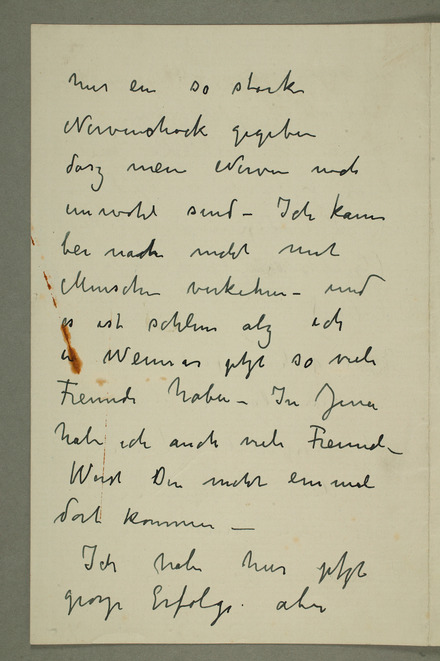 hier ein so starker
Nervenshock gegeben
dasz meine Nerven noch
unwohl sind – Ich kann
bei nache nicht mit
Menschen verkehren – und
es ist schlim alz ich
in Weimar jetzt so viele
Freunde habe – In Jena
habe ich auch viele Freunde –
Wirst Du nicht einmal
dort kommen –
Ich habe hier jetzt
grosze Erfolge. aber